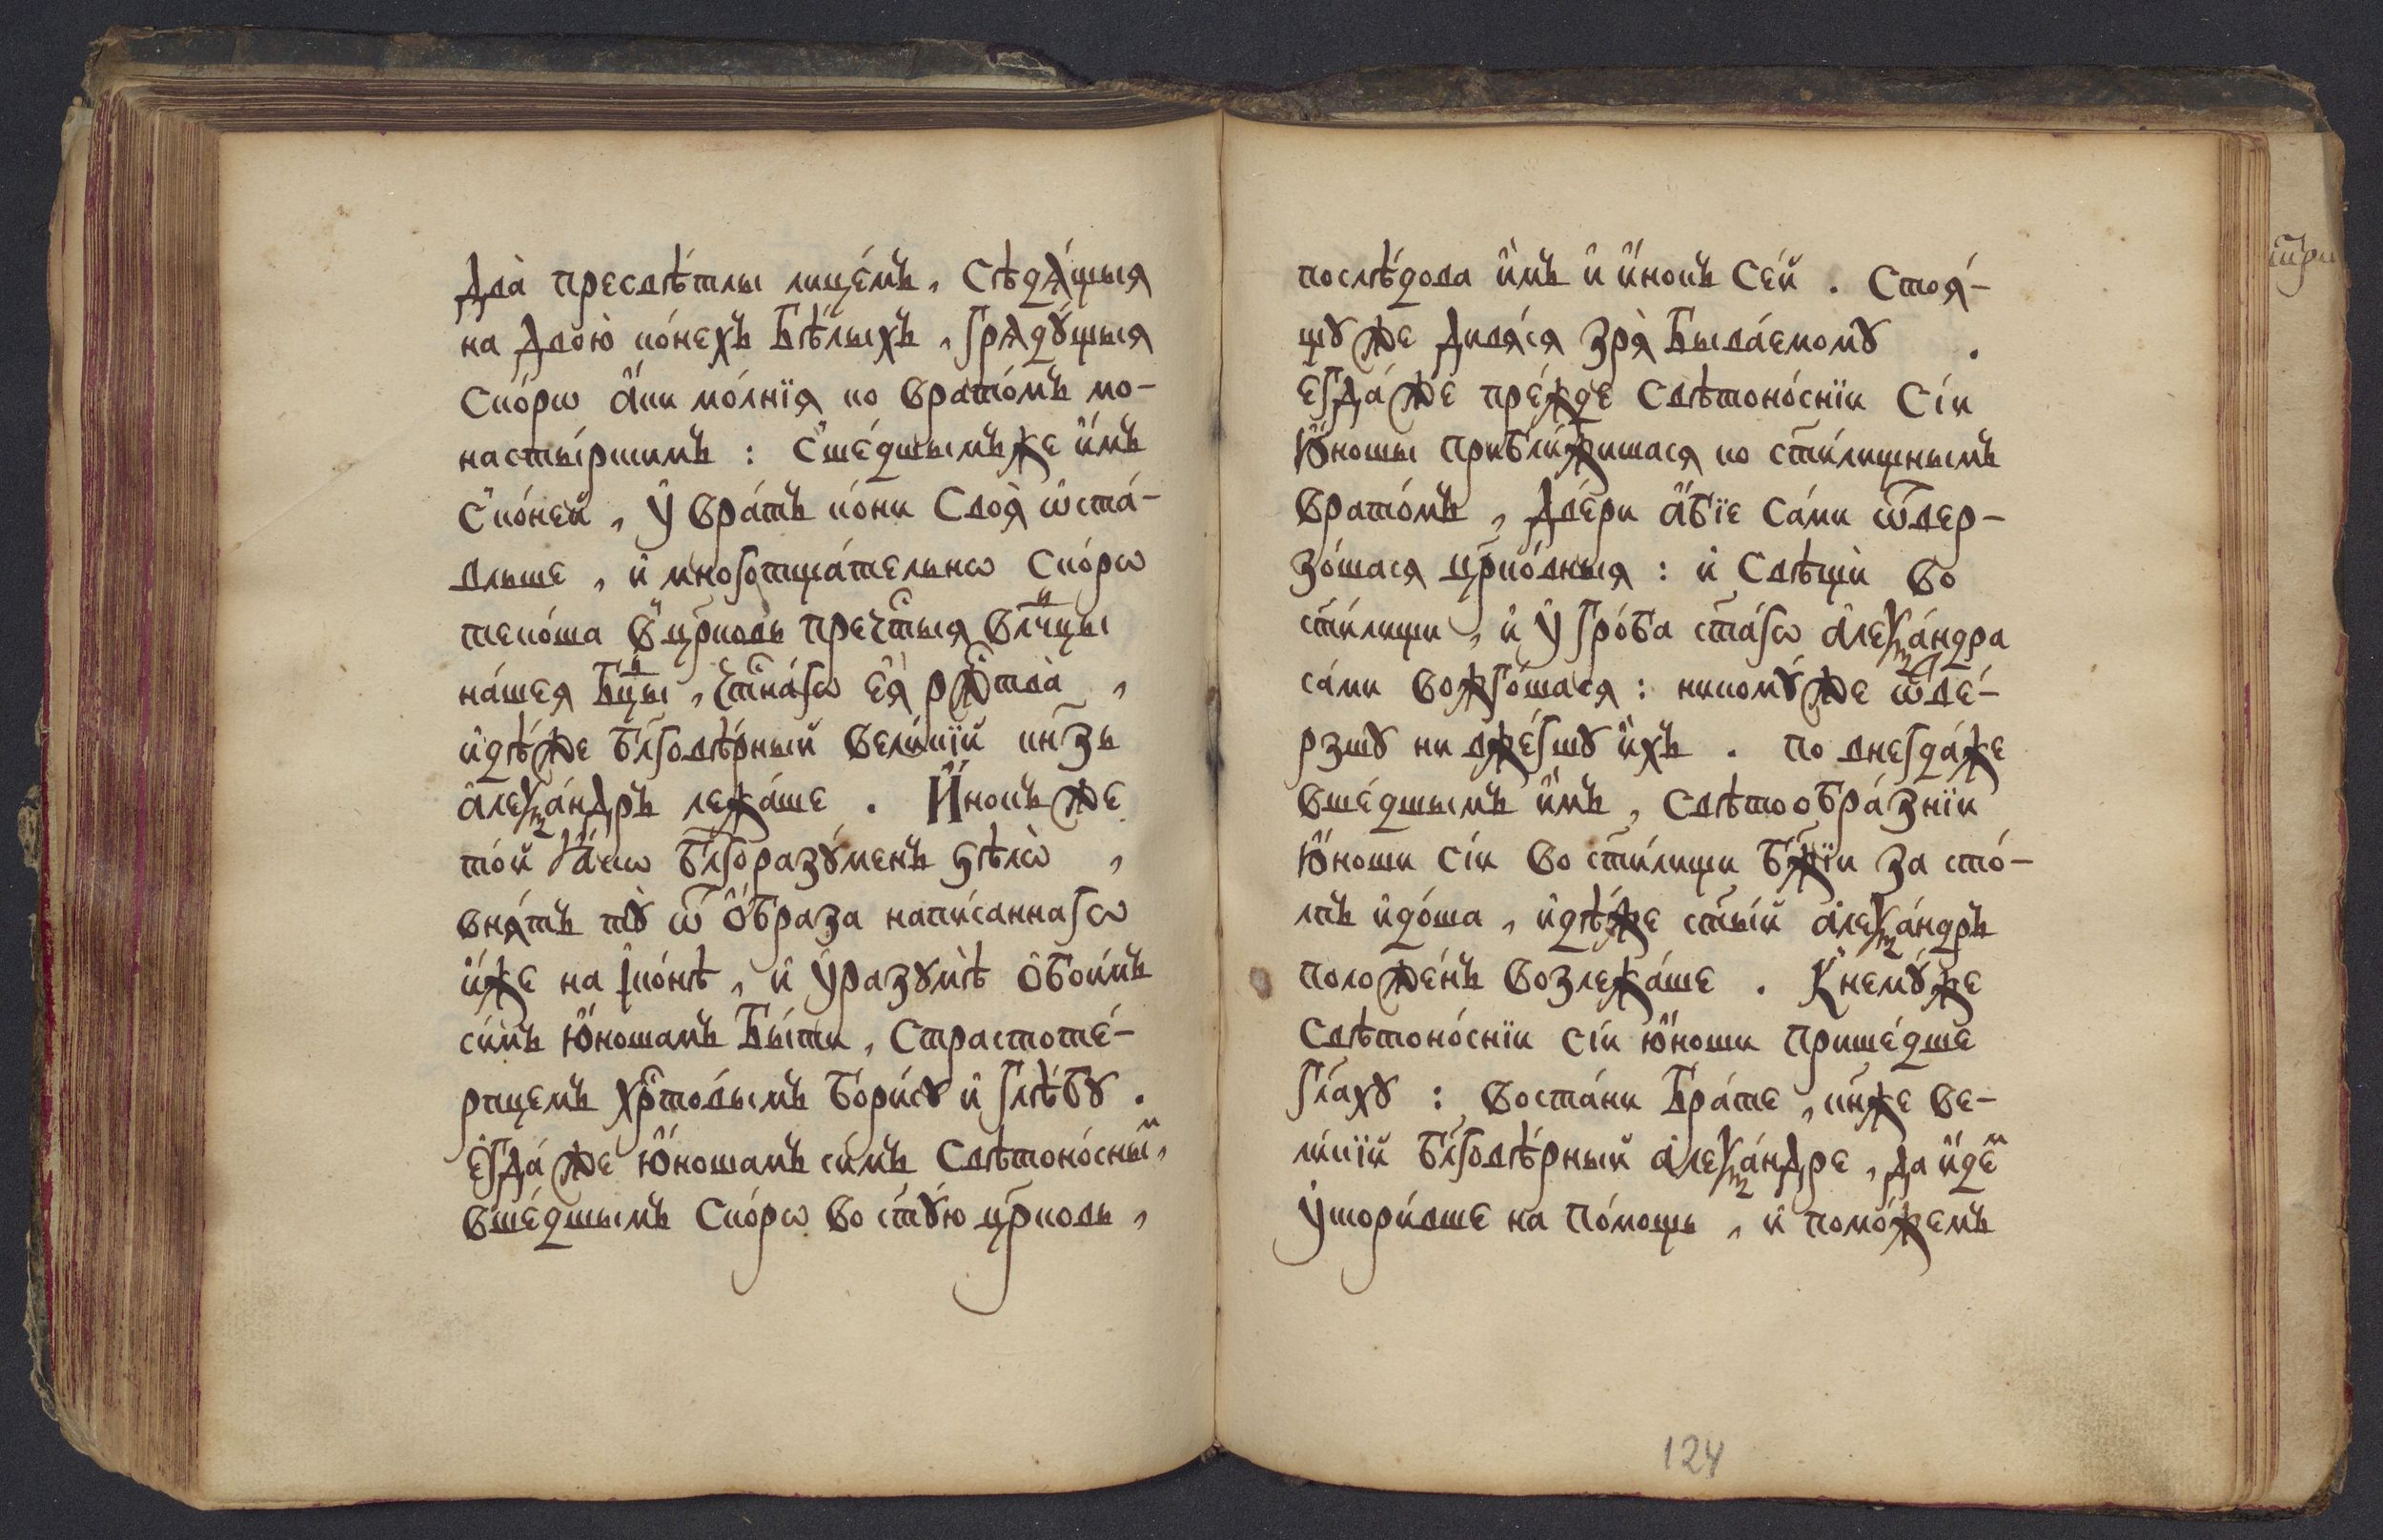 два̀ пресвѣ́тлы лице́мъ, сѣдѧ́щыя
на двою̀ ко́нехъ бѣ́лыхъ, грѧдꙋ́щыя
ско́рѡ а҆́ки мо́лнїѧ ко врато́мъ мо-
насты́рскимъ : сше́дшымъже и҆̀мъ
с̾ко́ней, у҆ вра́тъ ко́ни своѧ̀ ѡ҆ста́-
вльше, и҆ многотща́тельнѡ ско́рѡ
теко́ша в̾ цр҃ковь пречⷭ҇тыя влⷣчцы
на́шея бцⷣы, чⷭ҇тна́гѡ є҆ѧ̀ ржⷭ҇тва̀ ,
и҆дѣ́же бл҃говѣ́рный вели́кїй кн҃зь
а҆леѯа́ндръ лежа́ше . И҆́нокъ же
то́й ꙗ҆́кѡ бл҃горазꙋ́менъ ѕѣлѡ̀ ,
внѧ́тъ тꙋ̀ ѿ ѻ҆́браза напи́саннагѡ
и҆́же на і҆ко́нѣ, и҆ у҆разꙋмѣ̀ ѻ҆бои́мъ
си́мъ ю҆́ношамъ бы́ти, страстоте́-
рпцемъ хрⷭ҇то́вымъ бори́сꙋ и҆ глѣ́бꙋ .
є҆гда́ же ю҆́ношамъ си́мъ свѣтоно́сныⷨ,
вше́дшымъ ско́рѡ во ст҃ꙋ́ю цр҃ковь ,
послѣ́дова и҆̀мъ и҆ и҆́нокъ се́й . Стоѧ́-
щꙋ же дивѧ́сѧ зрѧ̀ быва́емомꙋ .
є҆гда́ же пре́жде свѣтоно́снїи сі́и
ю҆́ношы прибли́жишасѧ ко ст҃и́лищнымъ
врато́мъ, две́ри а҆́бїе са́ми ѿвер-
зо́шасѧ цр҃ко́вныя : и҆ свѣщѝ во
ст҃и́лищи, и҆ у҆ гро́ба ст҃а́гѡ а҆леѯа́ндра
са́ми вожго́шасѧ : никомꙋ́ же ѿве́-
рзшꙋ ни вже́гшꙋ и҆̀хъ . по внегда́же
вше́дшымъ и҆̀мъ, свѣтоѻбра́знїи
ю҆́ноши сі́и во ст҃и́лищи бж҃їи за сто́-
лпъ и҆до́ша, и҆дѣ́же ст҃ы́й а҆леѯа́ндръ
положе́нъ возлежа́ше . К̾немꙋ́же
свѣтоно́снїи сі́и ю҆́ноши прише́дше
гл҃ахꙋ : воста́ни бра́те, кн҃же ве-
ли́кїй бл҃говѣ́рный а҆леѯа́ндре, да и҆́деⷨ
у҆скори́вше на по́мощь, и҆ помо́жемъ
124